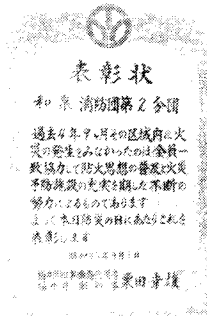 表彰状
和泉消防団第2分団
過去4年9ヶ月その区域内に火
災の発生をみなかったのは全員一
致協力して防火思想の普及と火災
予防施設の充実を期した不断の
努力によるものであります
よって本日防災の日にあたりこれを
表彰します
栗田幸雄